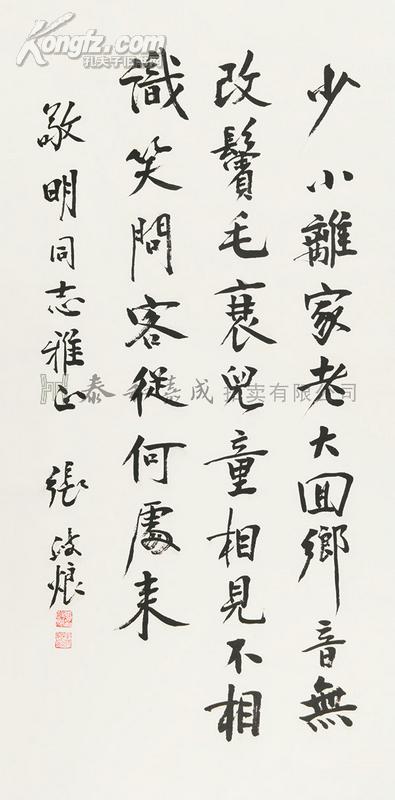 少小離家老大囬鄉音無
改鬢毛衰兒童相見不相
識笑問客從何處来
敬明同志雅正 張政烺
Kongfz.com
孔夫子旧书网
泰和嘉成拍卖有限公司